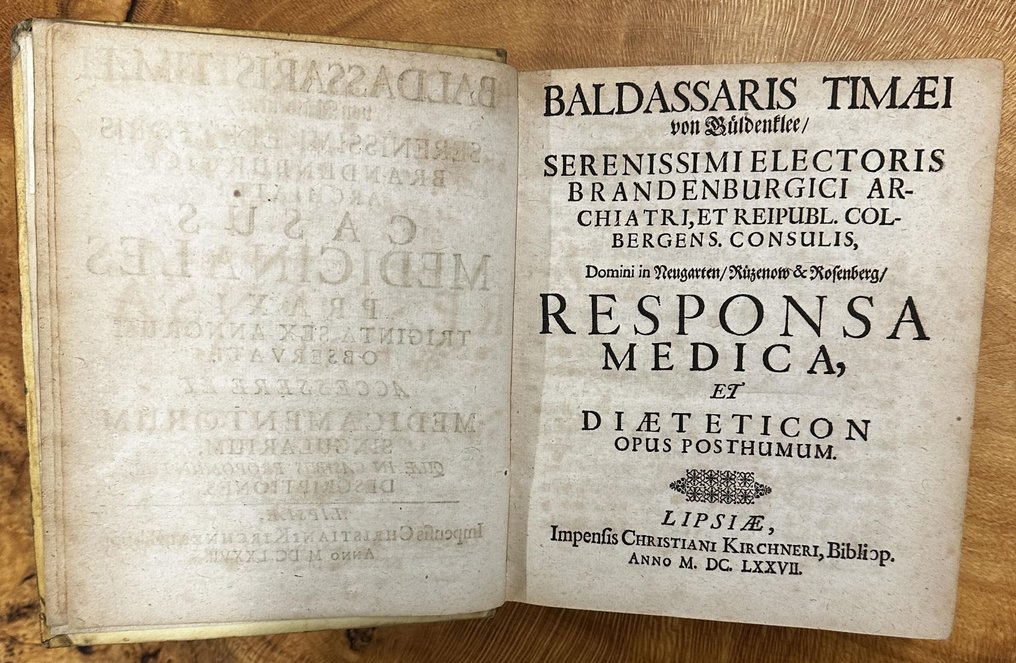 BALDASSARIS TIMÆI
von Güldenklee/
SERENISSIMI ELECTORIS
BRANDENBURGICI AR-
CHIATRI, ET REIPUBL. COL-
BERGENS. CONSULIS,
Domini in Neugarten/ Rützenow & Roſenberg/
RESPONSA
MEDICA,
ET
DIÆTETICON
OPUS POSTHUMUM.
LIPSIÆ,
Impenſis CHRISTIANI KIRCHNERI, Bibliop.
ANNO M. DC. LXXVII.